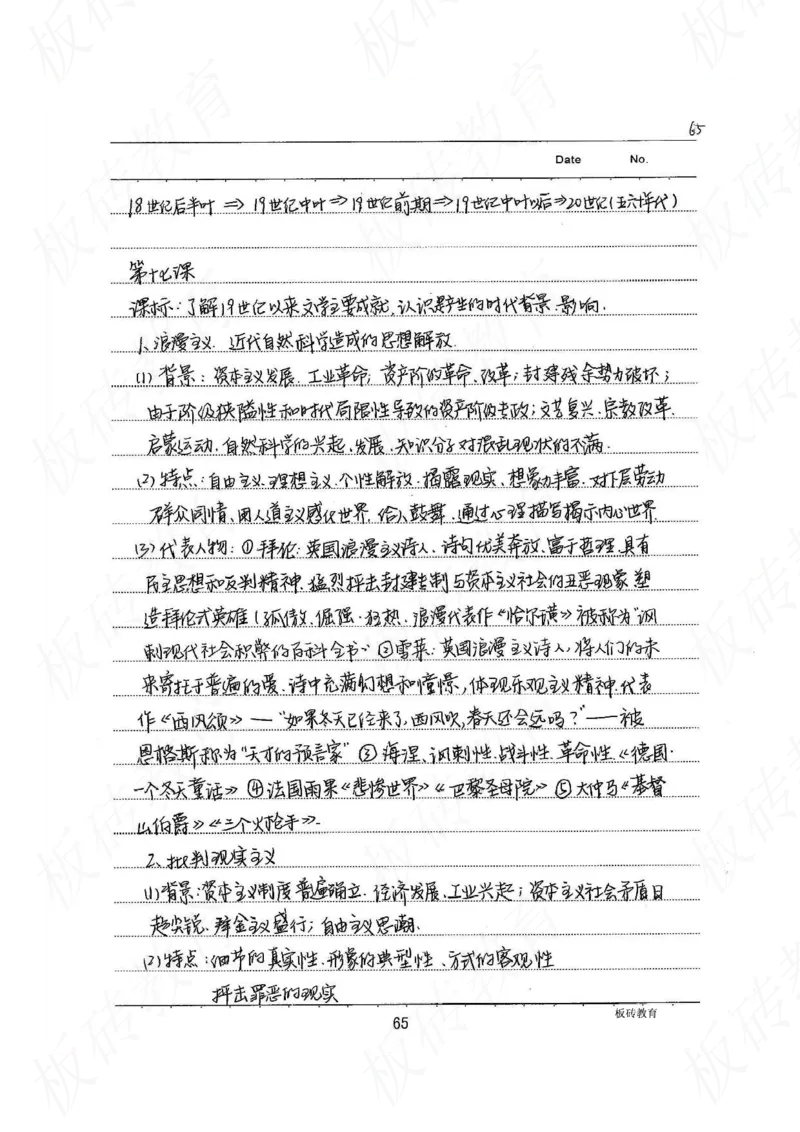 65
Date No.
18世纪后半叶 => 19世纪中叶=>19世纪前期=>19世纪中叶以后=>20世纪(五六十年代)
第十七课
课标:了解19世纪以来文学主要成就,认识其产生的时代背景、影响.
1、浪漫主义. 近代自然科学造成的思想解放.
(1) 背景:资本主义发展、工业革命;资产阶的革命、改革;封建残余势力破坏;
由于阶级狭隘性和时代局限性导致的资产阶级专政;文艺复兴、宗教改革、
启蒙运动、自然科学的兴起、发展、知识分子对混乱现状的不满.
(2)特点:自由主义、理想主义、个性解放、揭露现实、想象力丰富、对下层劳动
群众同情、用人道主义感化世界、给人鼓舞、通过心理描写揭示内心世界
(3)代表人物:①拜伦:英国浪漫主义诗人、诗句优美奔放、富于哲理、具有
民主思想和反判精神、猛烈抨击封建专制与资本主义社会的丑恶现象、塑
造拜伦式英雄(孤傲、倔强、狂热、浪漫代表作《恰尔璜》被称为“讽
刺现代社会积弊的百科全书” ②雪莱、英国浪漫主义诗人,将人们的未
来寄托于普遍的爱、诗中充满幻想和憧憬,体现乐观主义精神.代表
作《西风颂》—“如果冬天已经来了,西风吹,春天还会远吗?”——被
恩格斯称为“天才的预言家” ③ 海涅、讽刺性、战斗性、革命性《德国·
一个冬天童话》 ④法国雨果《悲惨世界》《巴黎圣母院》 ⑤大仲马《基督
山伯爵》《三个火枪手》.
2、批判现实主义
(1)背景:资本主义制度普遍确立、经济发展、工业兴起;资本主义社会矛盾日
趋尖锐、拜金主义盛行;自由主义思潮.
(2)特点:细节的真实性、形象的典型性、方式的客观性
抨击罪恶的现实
板砖教育
65